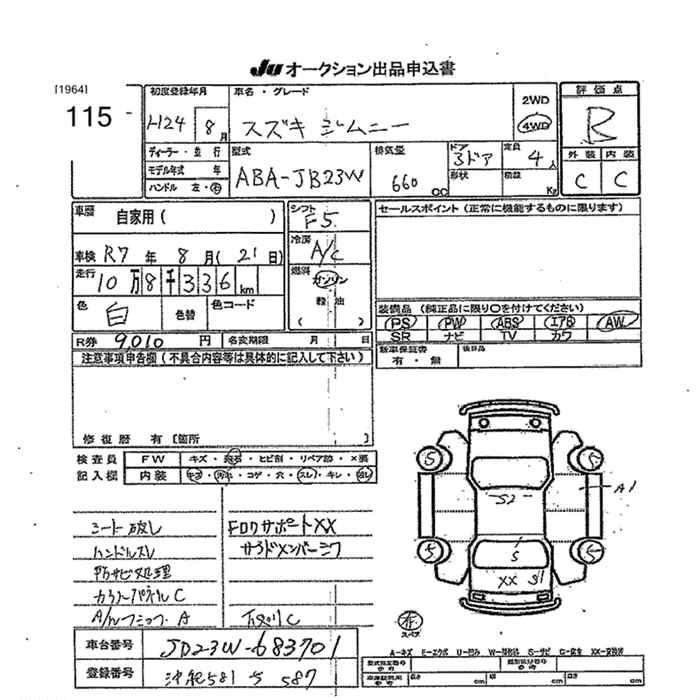 JU オークション出品申込書
[1964]
115
初度登録年月
H24 8月
車名・グレード
スズキ ジムニー
2WD
4WD
評価点
R
外装 内装
C C
ディーラー・並行
モデル年式 年
ハンドル 左・右
型式
ABA-JB23W
排気量
660 CC
ドア
3ドア
形状
定員
4人
積載
Kg
車歴
自家用( )
車検 R7年 8月(21日)
走行
10万8千336km
色
白
色替
色コード
シフト
F5
冷房
A/C
燃料
ガソリン
軽油
( )
セールスポイント(正常に機能するものに限ります)
装備品(純正品に限り○を付けてください)
PS PW ABS エアB AW
SR ナビ TV カワ
新車保証書
有・無
後日品
R券 9,010円
名変期限 月 日
注意事項申告欄(不具合内容等は具体的に記入して下さい)
修復歴 有〔箇所 〕
検査員
記入欄
FW
キズ・飛石・ヒビ割・リペア跡・×要
内装
キズ・汚れ・コゲ・穴・スレ・キレ・
シート破し
ハンドルスレ
防サビ処理
Fロワサポート XX
サイドメンバー
A
C
S2
A1
S
XX S1
S S S S
有
スペア
車台番号
JB23W-683701
登録番号
沖縄581 587
A-キズ E-エクボ U-凹み W-補修跡 S-サビ C-腐食 XX-交換済
長さ cm
幅 cm
高さ cm